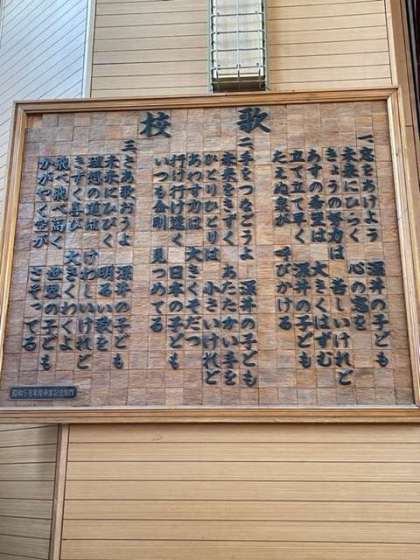 校歌
一 窓をあけよう 深井の子ども
未来にひらく 心の窓を
きょうの努力は 苦しいけれど
あすの希望は 大きくはずむ
立て立て早く 深井の子ども
たたえ泉が 呼びかける
二 手をつなごうよ 深井の子ども
未来をきずく あたたかい手を
ひとりひとりは 小さいけれど
あわす力は 大きくそだつ
行け行け遠く 日本の子ども
いつも金剛 見つめてる
三 さあ歌おうよ 深井の子ども
未来にひびく 明るい歌を
理想の道は けわしいけれど
きずく喜び 大きくわくよ
飛べ飛べ高く 世界の子ども
かがやく空が さそってる
昭和58年度卒業記念制作